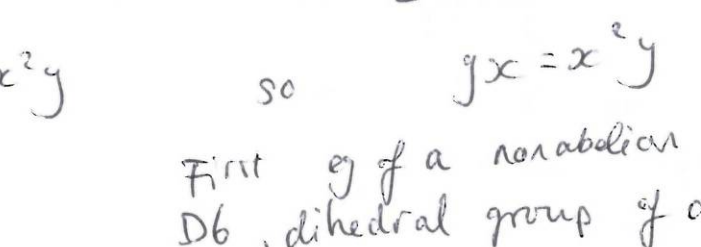 x²y so yx = x²y
First eg of a nonabelian
D6, dihedral group of o